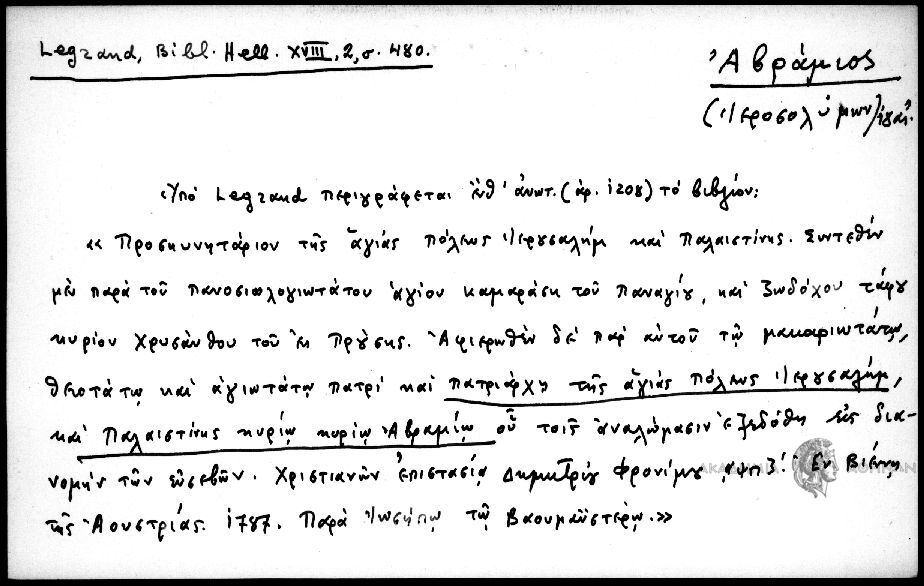 Legrand, Bibl. Hell. XVIII, 2, σ. 480.
Ἀβράμιος
(Ἱεροσολύμων)
Ὑπὸ Legrand περιγράφεται ἔνθ' ἀνωτ. (ἀρ. 1208) τὸ βιβλίον:
« Προσκυνητάριον τῆς ἁγίας πόλεως Ἱερουσαλὴμ καὶ Παλαιστίνης. Συντεθὲν
μὲν παρὰ τοῦ πανοσιωλογιωτάτου ἁγίου καμαράση τοῦ Παναγίου, καὶ ζωδόχου τάφου
κυρίου Χρυσάνθου τοῦ ἐκ Προύσης. Ἀφιερωθὲν δὲ παρ' αὐτοῦ τῷ μακαριωτάτῳ,
θειοτάτῳ καὶ ἁγιωτάτῳ πατρὶ καὶ πατριάρχῃ τῆς ἁγίας πόλεως Ἱερουσαλὴμ,
καὶ Παλαιστίνης κυρίῳ κυρίῳ Ἀβραμίῳ οὗ τοῖς ἀναλώμασιν ἐξεδόθη εἰς δια-
νομὴν τῶν εὐσεβῶν. Χριστιανῶν ἐπιστασίᾳ Δημητρίου Φρονίμου ͵αψπζ´. Ἐν Βιέννῃ
τῆς Ἀουστρίας. 1787. Παρὰ Ἰωσήπῳ τῷ Βαουμαϊστέρῳ.»